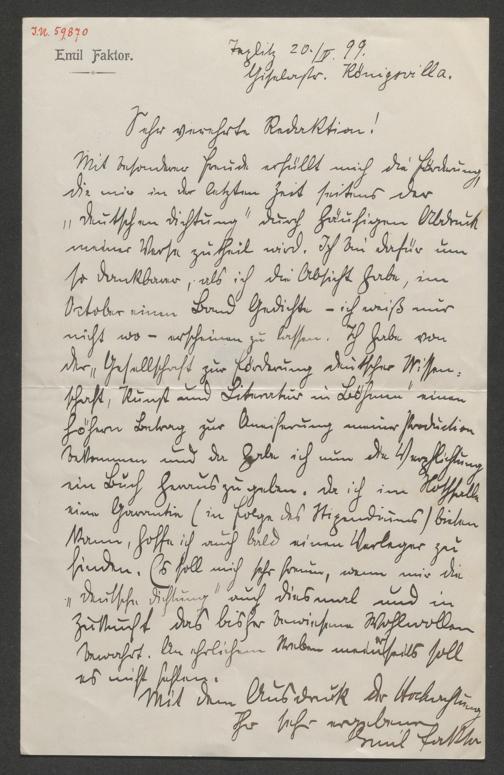 I.N. 59.870
Emil Faktor.
Teplitz 20./V. 99.
Giselastr. Königsvilla.
Sehr verehrte Redaktion!
Mit besonderer Freude erfüllt mich die Förderung,
die mir in der letzten Zeit seitens der
„Deutschen Dichtung" durch häufigen Abdruck
meiner Verse zu theil wird. Ich bin dafür um
so dankbarer, als ich die Absicht habe, im
October einen Band Gedichte – ich weiß nur
nicht wo – erscheinen zu lassen. Ich habe von
der „Gesellschaft zur Förderung deutscher Wissen=
schaft, Kunst und Literatur in Böhmen" einen
höhern Betrag zur Aneiferung meiner Production
bekommen und da habe ich nun die Verpflichtung
ein Buch herauszugeben. Da ich im Nothfalle
eine Garantie (in Folge des Stipendiums) bieten
kann, hoffe ich auch bald einen Verleger zu
finden. Es soll mich sehr freuen, wenn mir die
„Deutsche Dichtung" auch diesmal und in
Zukunft das bisher bewiesene Wohlwollen
bewahrt. An ehrlichem Streben meinerseits soll
es nicht fehlen.
Mit dem Ausdruck der Hochachtung
Ihr sehr ergebener
Emil Faktor